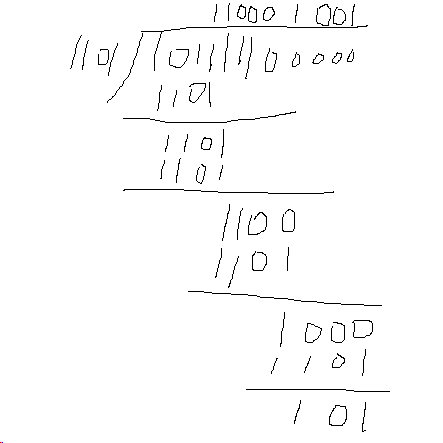 110001001
1101 101111100000
1101
1101
1101
1100
1101
1000
1101
101